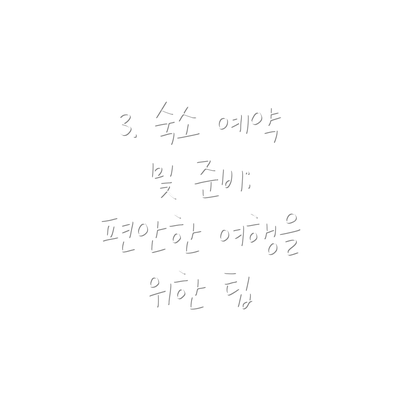 3. 숙소 예약
및 준비:
편안한 여행을
위한 팁